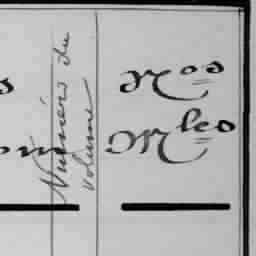 Numéro du
volume
Nos
Mles